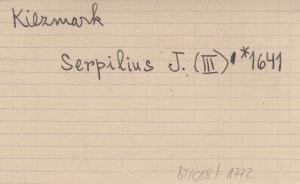 Kiezmark
Serpilius J. (III) *1641
BT/058/ 1772